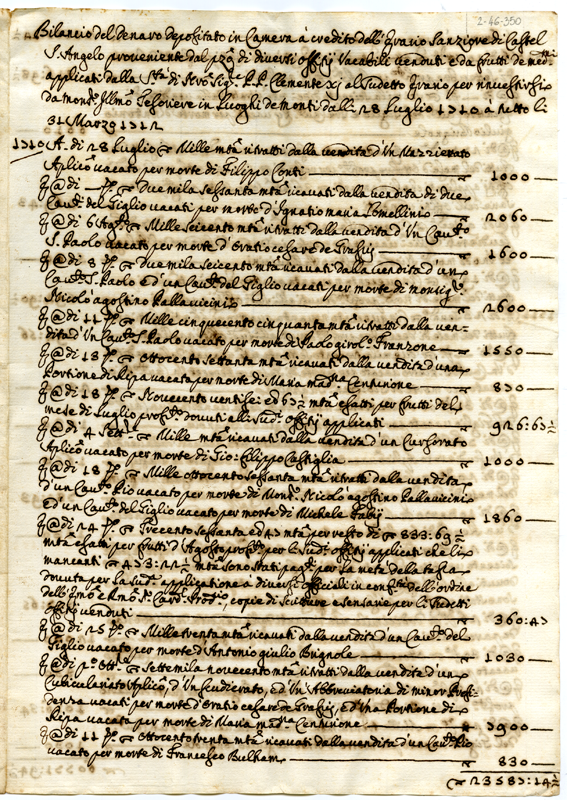 2-46-350
Bilancio del denaro depositato in Camera à credito dell' Erario Sanziore di Castel
S. Angelo proveniente dal pzo di diversi offitij Vacabili venduti e da frutti de med.mi
applicati dalla S.tà di Nro Sig.re P.P. Clemente xj al sudetto Erario per rinvestirsi
da mons.r Ill.mo Tesoriere in luoghi de monti dalli 28 Luglio 1710 à tutto li
31 Marzo 1712
1710 A di 28 Luglio Mille mta ritratti dalla vendita d'Un Mazzierato
Aplico vacato per morte di Filippo Conti 1000
E @ di Due mila sessanta mta ricavati dalla vendita di due
Cau.ti del Giglio vacati per morte d'Ignatio maria Lomellini 2060
E @ di 6 Ag.to Mille seicento mta ritratti dalla vendita d'Un Cau.to
S. Paolo vacato per morte d'Oratio cesare de Grassis 1600
E @ di 8 d.o Due mila seicento mta ricavati dalla vendita d'un
Cau.to S. Paolo e d'un Cau.to del Giglio vacati per morte di monsig.r
Nicolò agostino Pallavicinis 2600
E @ di 11 d.o Mille cinquecento cinquanta mta ritratti dalla ven-
dita d'Un Cau.to S. Paolo vacato per morte di Paolo girol.o Franzone 1550
E @ di 13 d.o Ottocento settanta mta ricavati dalla vendita d'una
Portione di Ripa vacata per morte di Maria mad.na Centurione 830
E @ di 18 d.o Novecento ventisei e 63 mta esatti per frutti del
mese di Luglio pross.o dovuti alli sud.i offitij applicati 926:63
E @ di 4 Sett.e Mille mta ricavati dalla vendita d'un Cursorato
Aplico vacato per morte di Gio: Filippo Castiglia 1000
E @ di 18 d.o Mille ottocento sessanta mta ritratti dalla vendita
d'un Cau.to Pio vacato per morte di Mons.r Nicolò agostino Pallavicinis
e d'un Cau.to del Giglio vacato per morte di Michele Fabij 1860
E @ di 24 d.o Trecento sessanta e 43 mta per resto di 833:69
mta esatti per frutti d'Agosto pross.o per li sud.i offitij applicati che li
mancanti 473:22 mta sono stati pag.ti per la metà della tassa
dovuta per la sud.a applicatione a diversi officiali in conf.tà dell'ordine
dell' Emo e Rmo S.r Card.e, copie di scritture e sensarie per li sudetti
offitij venduti 360:43
E @ di 25 d.o Mille trenta mta ricavati dalla vendita d'un Cau.to del
Giglio vacato per morte d'Antonio giulio Brignole 1030
E @ di p.o Ott.e Sette mila novecento mta ritratti dalla vendita d'un
Cubiculariato Aplico, d'Un scudierato, e d'Un'Abbreviatoria di minor Presi-
denza vacati per morte d'Oratio cesare de Grassis, e d'Una Portione di
Ripa vacata per morte di Maria mad.na Centurione 7900
E @ di 11 d.o Ottocento trenta mta ricavati dalla vendita d'un Cau.to Pio
vacato per morte di Francesco Bulham 830
23583:14